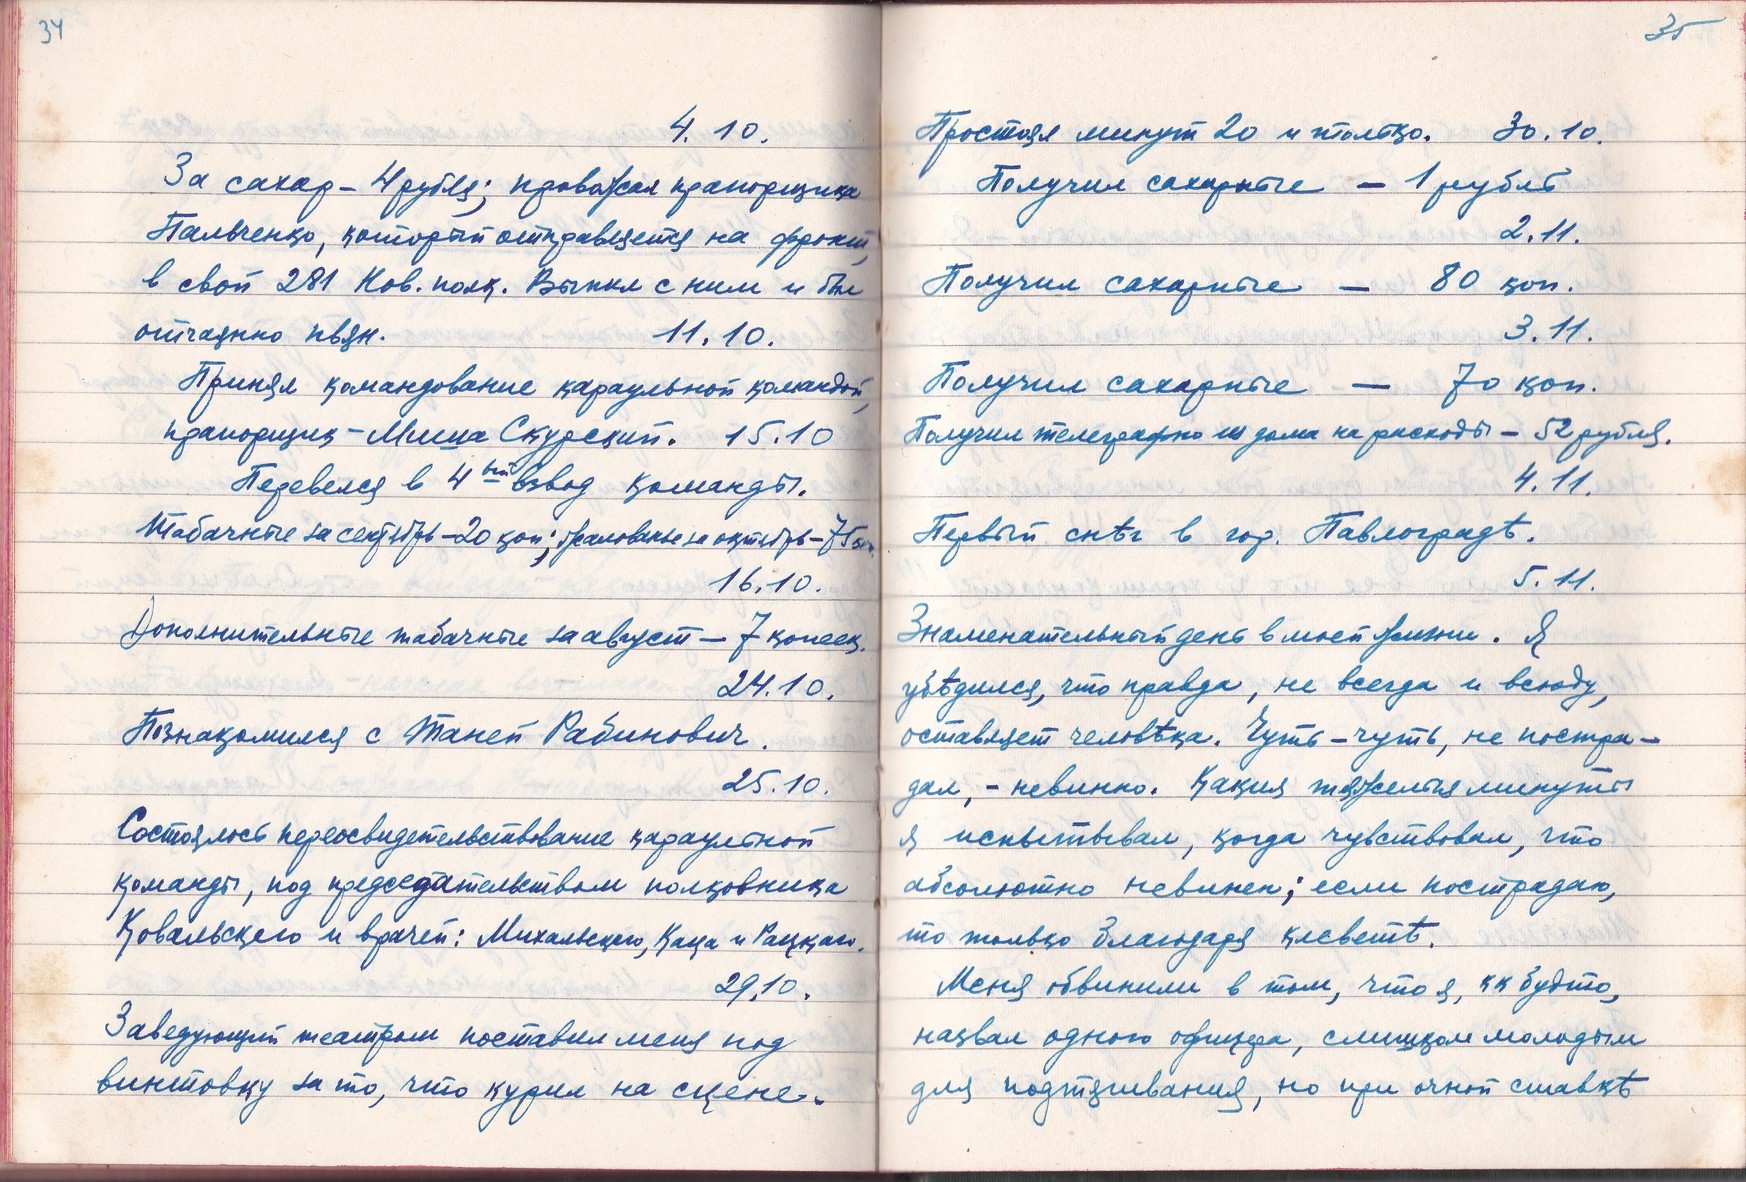 34
4. 10.
За сахар – 4 рубля; провожал прапорщика
Пальченко, который отправляется на фронт,
в свой 281 Нов. полк. Выпил с ним и был
отчаянно пьян. 11. 10.
Принял командование караульной командой,
прапорщик – Миша Скурский. 15. 10
Перевелся в 4 ый взвод команды.
Табачные за сентябрь – 20 коп; жалованье за октябрь – 75 коп.
16. 10.
Дополнительные табачные за август – 7 копеек.
24. 10.
Познакомился с Таней Рабинович.
25. 10.
Состоялось переосвидетельствование караульной
команды, под председательством полковника
Ковальскего и врачей: Михальскего, Каца и Рацкаго.
29. 10.
Заведующий театром поставил меня под
винтовку за то, что курил на сцене.
35
Простоял минут 20 и только. 30. 10.
Получил сахарные – 1 рубль
2. 11.
Получил сахарные – 80 коп.
3. 11.
Получил сахарные – 70 коп.
Получил телеграфно из дома на расходы – 52 рубля.
4. 11.
Первый снѣг в гор. Павлоградѣ.
5. 11.
Знаменательный день в моей жизни. Я
убѣдился, что правда, не всегда и всюду,
оставляет человѣка. Чуть – чуть, не постра-
дал, – невинно. Какия тяжелыя минуты
я испытывал, когда чувствовал, что
абсолютно невинен; если пострадаю,
то только благодаря клеветѣ.
Меня обвинили в том, что я, кк будто,
назвал одного офицера, слишком молодым
для подтягивания, но при очной ставкѣ